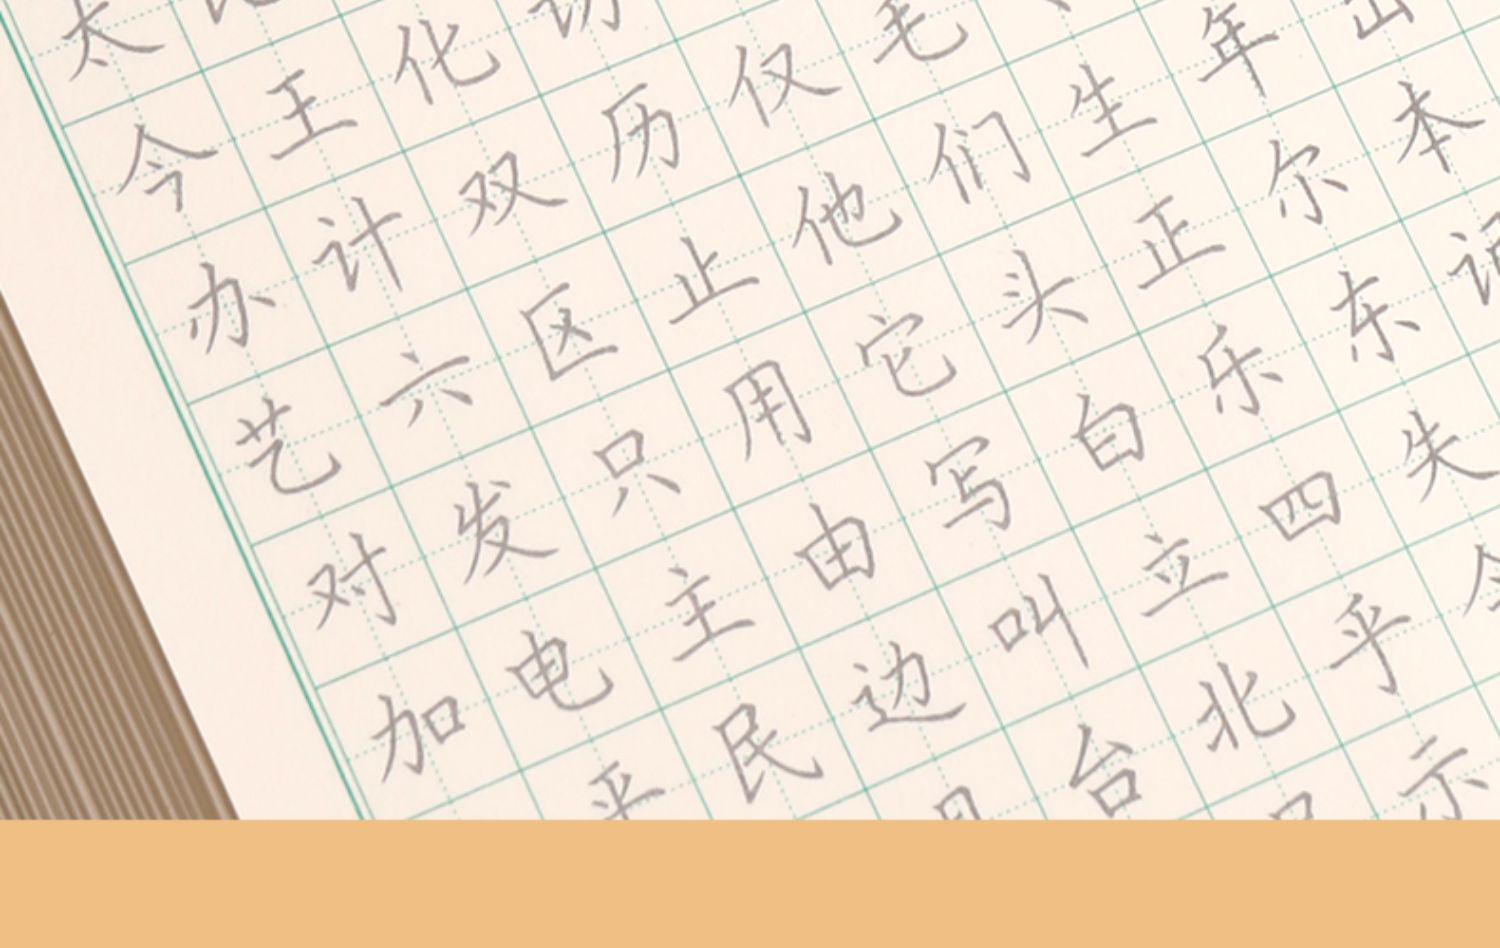 太
今王化
办计双历仅毛
艺六区止他们生年出
对发只用它头正尔本
加电主由写白乐东记
平民边叫立四失
台北乎
示